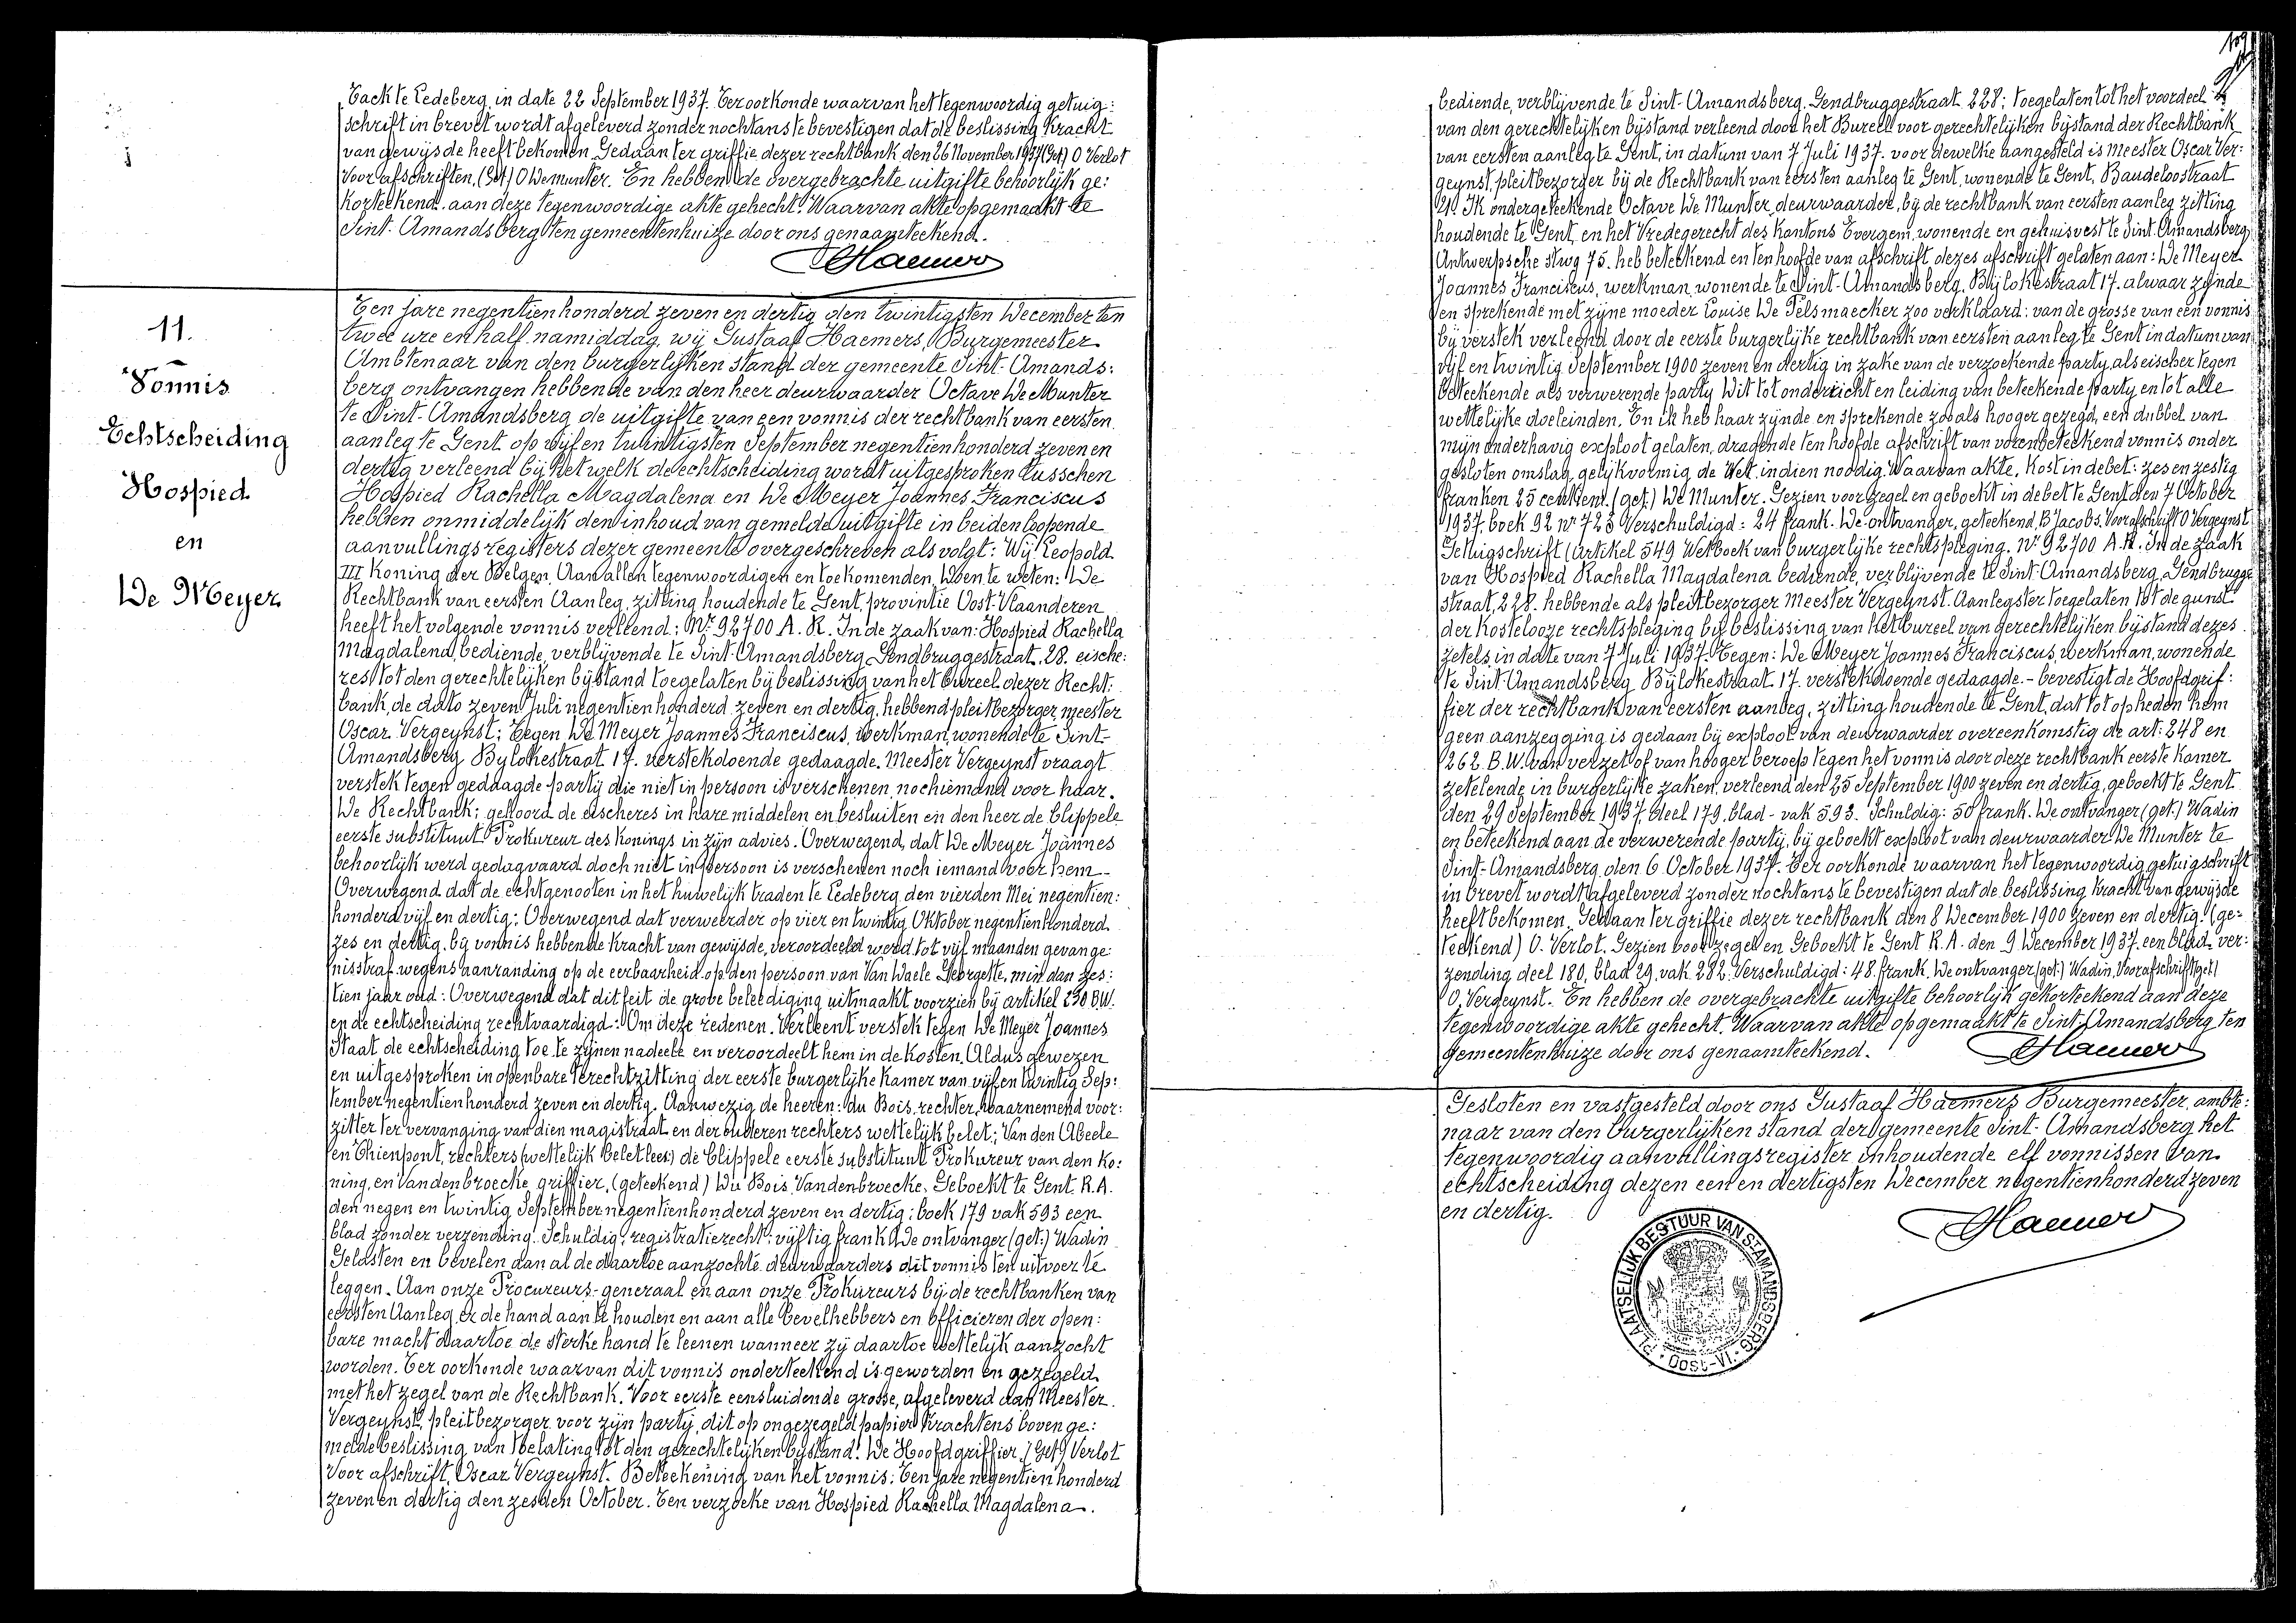 Tack te Ledeberg, in date 22 September 1937. Ter oorkonde waarvan het tegenwoordig getuig:
schrift in brevet wordt afgeleverd zonder nochtans te bevestigen dat de beslissing kracht
van gewijsde heeft bekomen. Gedaan ter griffie dezer rechtbank den 26 November 1937 (Get) O Verlot
Voor afschriften, (Get) O Demunter. En hebben de overgebrachte uitgifte behoorlijk ge:
korteekend. aan deze tegenwoordige akte gehecht. Waarvan akte opgemaakt te
Sint-Amandsberg ten gemeentenhuize door ons genaamteekend.
Haemers
11.
Vonnis
Echtscheiding
Hospied
en
De Meyer
Ten jare negentienhonderd zeven en dertig den twintigsten December ten
twee ure en half namiddag, wij Gustaaf Haemers, Burgemeester
Ambtenaar van den burgerlijken stand der gemeente Sint-Amands:
berg ontvangen hebbende van den heer deurwaarder Octave De Munter
te Sint-Amandsberg de uitgifte van een vonnis der rechtbank van eersten
aanleg te Gent op vijf en twintigsten September negentienhonderd zeven en
dertig verleend bij hetwelk de echtscheiding wordt uitgesproken tusschen
Hospied Rachella Magdalena en De Meyer Joannes Franciscus
hebben onmiddelijk den inhoud van gemelde uitgifte in beiden loopende
aanvullingsregisters dezer gemeente overgeschreven als volgt: Wij Leopold
III Koning der Belgen, Aan allen tegenwoordigen en toekomenden, Doen te weten: De
Rechtbank van eersten Aanleg, zitting houdende te Gent, provintie Oost-Vlaanderen
heeft het volgende vonnis verleend: Nr 92700 A. R. In de zaak van: Hospied Rachella
Magdalena, bediende, verblijvende te Sint-Amandsberg Gendbruggestraat. 28. eische:
res tot den gerechtelijken bijstand toegelaten bij beslissing van het bureel dezer Recht:
bank, de dato zeven Juli negentienhonderd zeven en dertig, hebbend pleitbezorger meester
Oscar Vergeynst; Tegen De Meyer Joannes Franciscus, werkman, wonende te Sint-
Amandsberg Bylokestraat 17. verstekdoende gedaagde. Meester Vergeynst vraagt
verstek tegen gedaagde party die niet in persoon is verschenen noch iemand voor haar.
De Rechtbank; gehoord de eischeres in hare middelen en besluiten en den heer de Clippele
eerste substituut Prokureur des Konings in zijn advies. Overwegend, dat De Meyer Joannes
behoorlijk werd gedagvaard doch niet in persoon is verschenen noch iemand voor hem -
Overwegend dat de echtgenooten in het huwelijk traden te Ledeberg den vierden Mei negentien:
honderd vijf en dertig; Overwegend dat verweerder op vier en twintig Oktober negentienhonderd
zes en dertig. bij vonnis hebbende kracht van gewijsde, veroordeeld werd tot vijf maanden gevange
nisstraf wegens aanranding op de eerbaarheid op den persoon van Van Waele Georgette, min dan zes:
tien jaar oud: Overwegend dat dit feit de grove beleediging uitmaakt voorzien bij artikel 230 B.W.
en de echtscheiding rechtvaardigd: Om deze redenen. Verleent verstek tegen De Meyer Joannes
Staat de echtscheiding toe te zijnen nadeele en veroordeelt hem in de kosten. Aldus gewezen
en uitgesproken in openbare terechtzitting der eerste burgerlijke kamer van vijf en twintig Sep:
tember negentienhonderd zeven en dertig. Aanwezig de heeren: du Bois, rechter, waarnemend voor:
zitter ter vervanging van dien magistraat en der ouderen rechters wettelijk belet; Van den Abeele
en Thienpont, rechters (wettelijk belet leer) de Clippele eerste substituut Prokureur van den Ko:
ning, en Vandenbroecke griffier, (geteekend) Du Bois Vandenbroecke. Geboekt te Gent. R.A.
den negen en twintig September negentienhonderd zeven en dertig: boek 179 vak 593 een
blad zonder verzending. Schuldig: registratierecht: vijftig frank De ontvanger (get:) Wadin
Gelasten en bevelen dan al de daartoe aanzochte deurwaarders dit vonnis ten uitvoer te
leggen. Aan onze Procureurs-generaal en aan onze Prokureurs bij de rechtbanken van
eersten Aanleg er de hand aan te houden en aan alle bevelhebbers en officieren der open:
bare macht daartoe de sterke hand te leenen wanneer zij daartoe wettelijk aanzocht
worden. Ter oorkonde waarvan dit vonnis onderteekend is geworden en gezegeld
met het zegel van de Rechtbank. Voor eerste eensluidende grosse, afgeleverd aan Meester
Vergeynst, pleitbezorger voor zijn party, dit op ongezegeld papier krachtens boven ge:
melde beslissing van toelating tot den gerechtelijken bijstand. De Hoofdgriffier. (Get) Verlot
Voor afschrift, Oscar Vergeynst. Beteekening van het vonnis: Ten jare negentien honderd
zeven en dertig den zesden October. Ten verzoeke van Hospied Rachella Magdalena.
109
bediende, verblijvende te Sint-Amandsberg, Gendbruggestraat 228; toegelaten tot het voordeel
van den gerechtelijken bijstand verleend door het Bureel voor gerechtelijken bijstand der Rechtbank
van eersten aanleg te Gent, in datum van 7 Juli 1937. voor dewelke aangesteld is meester Oscar Ver:
geynst, pleitbezorger bij de Rechtbank van eersten aanleg te Gent, wonende te Gent, Baudeloostraat
21. Ik ondergeteekende Octave De Munter, deurwaarder, bij de rechtbank van eersten aanleg zitting
houdende te Gent, en het Vredegerecht des Kantons Evergem, wonende en gehuisvest te Sint-Amandsberg
Antwerpsche stwg 75. heb beteekend en ten hoofde van afschrift dezes afschrift gelaten aan: De Meyer
Joannes Franciscus, werkman wonende te Sint-Amandsberg, Bijlokestraat 17. alwaar zijnde
en sprekende met zijne moeder Louise De Pelsmaecker zoo verklaard: van de grosse van een vonnis
bij verstek verleend door de eerste burgerlijke rechtbank van eersten aanleg te Gent in datum van
vijf en twintig September 1900 zeven en dertig in zake van de verzoekende party, als eischer tegen
beteekende als verwerende party Dit tot onderricht en leiding van beteekende party en tot alle
wettelijke doeleinden. En ik heb haar zijnde en sprekende zooals hooger gezegd, een dubbel van
mijn onderhavig exploot gelaten, dragende ten hoofde afschrift van vorenbeteekend vonnis onder
gesloten omslag, gelijkvormig de Wet. indien noodig. Waarvan akte, Kost in debet: zes en zestig
franken 25 centiem. (get.) De Munter. Gezien voor zegel en geboekt in debet te Gent den 7 October
1937. boek 92 nr 723 Verschuldigd: 24 frank. De ontvanger, geteekend, B Jacobs. Voor afschrift O Vergeynst
Getuigschrift (Artikel 549 Wetboek van burgerlijke rechtspleging. Nr 92700 A.R. In de zaak
van Hospied Rachella Magdalena bediende, verblijvende te Sint-Amandsberg, Gendbrugge
straat, 228. hebbende als pleitbezorger Meester Vergeynst. Aanlegster toegelaten tot de gunst
der Kostelooze rechtspleging bij beslissing van het bureel van gerechtelijken bijstand dezes
zetels, in date van 7 Juli 1937. Tegen: De Meyer Joannes Franciscus, werkman, wonende
te Sint Amandsberg Bijlokestraat 17. verstekdoende gedaagde. - bevestigt de Hoofdgrif:
fier der rechtbank van eersten aanleg, zitting houdende te Gent, dat tot op heden hem
geen aanzegging is gedaan bij exploot van deurwaarder overeenkomstig de art: 248 en
262 B.W. van verzet of van hooger beroep tegen het vonnis door deze rechtbank eerste kamer
zetelende in burgerlijke zaken, verleend den 25 September 1900 zeven en dertig, geboekt te Gent
den 29 September 1937. deel 179. blad - vak 593. Schuldig: 50 frank. De ontvanger (get.) Wadin
en beteekend aan de verwerende party, bij geboekt exploot van deurwaarder De Munter te
Sint-Amandsberg den 6 October 1937. Ter oorkonde waarvan het tegenwoordig getuigschrift
in brevet wordt afgeleverd zonder nochtans te bevestigen dat de beslissing kracht van gewijsde
heeft bekomen. Gedaan ter griffie dezer rechtbank den 8 December 1900 zeven en dertig. (ge:
teekend) O. Verlot. Gezien voor zegel en Geboekt te Gent R.A. den 9 December 1937. een blad ver:
zending deel 180, blad 29. vak 282. Verschuldigd: 48. frank. De ontvanger (get:) Wadin, Voor afschrift (get)
O, Vergeynst. En hebben de overgebrachte uitgifte behoorlijk gekorteekend aan deze
tegenwoordige akte gehecht. Waarvan akte opgemaakt te Sint-Amandsberg ten
gemeentenhuize door ons genaamteekend.
Haemers
Gesloten en vastgesteld door ons Gustaaf Haemers Burgemeester, ambte:
naar van den burgerlijken stand der gemeente Sint-Amandsberg het
tegenwoordig aanvullingsregister inhoudende elf vonnissen van
echtscheiding dezen een en dertigsten December negentienhonderd zeven
en dertig.
Haemers
PLAATSELIJK BESTUUR VAN ST AMANDSBERG
Oost-Vl.